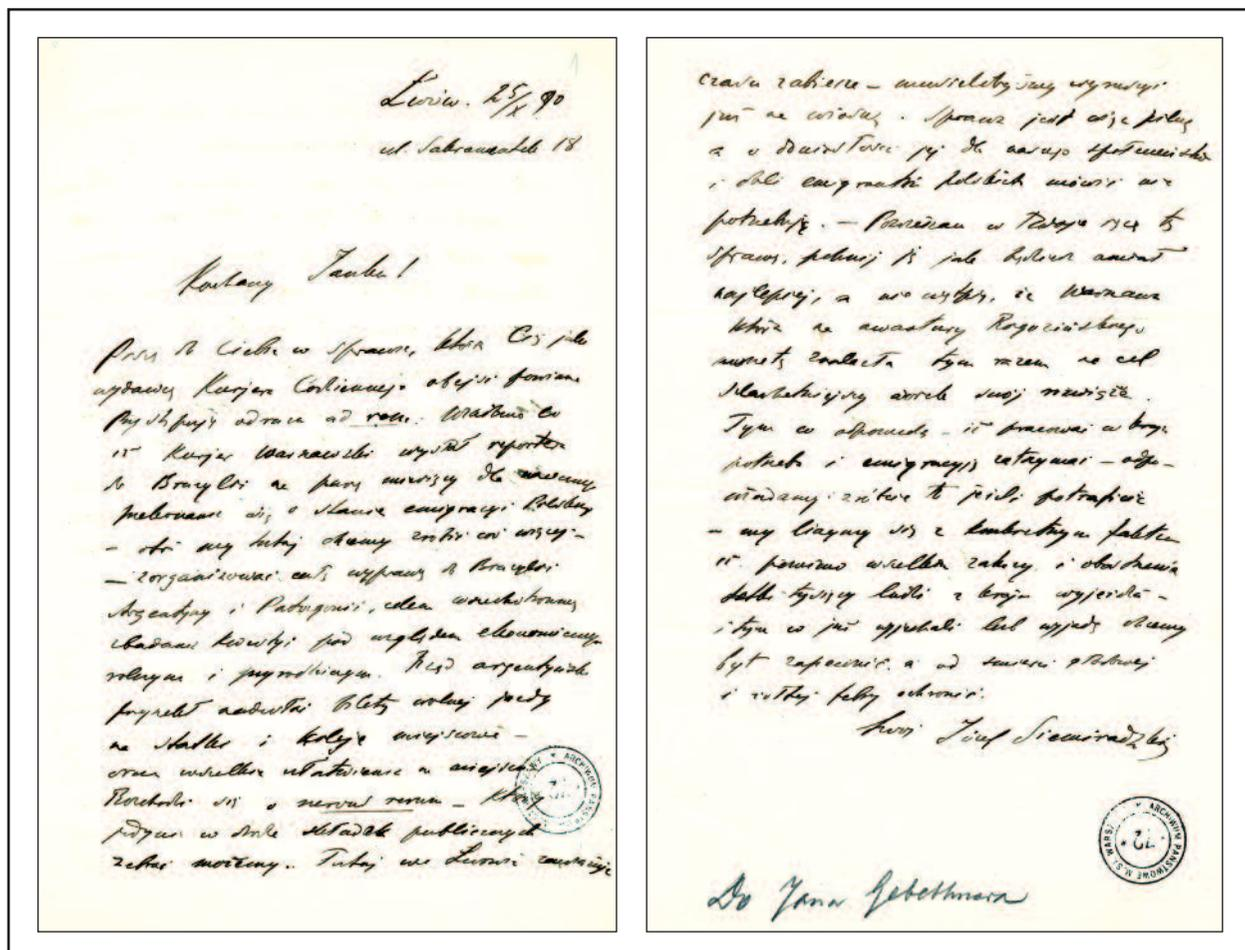 1
Lwów. 25/X 90
ul. 18
Kochany Janku!
Piszę do Ciebie w sprawie, która Cię jako
wydawcę Kurjera Codziennego obejść powinna
Przystępuję odrazu ad rem. Wiadomo Ci
iż Kurjer Warszawski wysłał reportera
do Brazylii na parę miesięcy dla
przekonania się o stanie emigracyi Polskiej
– otóż my tutaj chcemy zrobić coś więcej –
– zorganizować całą wyprawę do Brazylii
Argentyny i Patagonii, celem wszechstronnego
zbadania kwestyi pod względem ekonomicznym
rolnym i przyrodniczym. Rząd argentyński
przyrzekł nadesłać bilety wolnej jazdy
na statki i koleje miejscowe –
oraz wszelkie ułatwienia na miejscu
Rozchodzi się o nervus rerum – który
jedynie w drodze składek publicznych
zebrać możemy. Tutaj we Lwowie
czasu zabierze – a musielibyśmy wyruszyć
już na wiosnę. Sprawa jest więc pilną
a o doniosłości jej dla naszego społeczeństwa
i doli emigrantów polskich mówić nie
potrzebuję. – Powierzam w Twoje ręce tę
sprawę, pokieruj ją jak będziesz umiał
najlepiej, a nie wątpię, że Warszawa
która na awantury Rogozińskiego
znalazła tym razem na cel
szlachetniejszy worek swój rozwiąże.
Tym co odpowiedzą – iż pracować w kraju
potrzeba i emigracyję zatrzymać – odpo-
wiadamy: zróbcie to jeśli potraficie
– my liczymy się z konkretnym faktem
iż pomimo wszelkie zakazy i obostrzenia
setki tysięcy ludzi z kraju wyjeżdża –
i tym co już wyjechali lub wyjadą chcemy
byt zapewnić, a od śmierci głodowej
i żółtej febry ochronić.
Twój Józef Siemiradzki
ARCHIWUM PAŃSTWOWE M. ST. WARSZAWY
72
ARCHIWUM PAŃSTWOWE M. ST. WARSZAWY
72
Do Jana Gebethnera